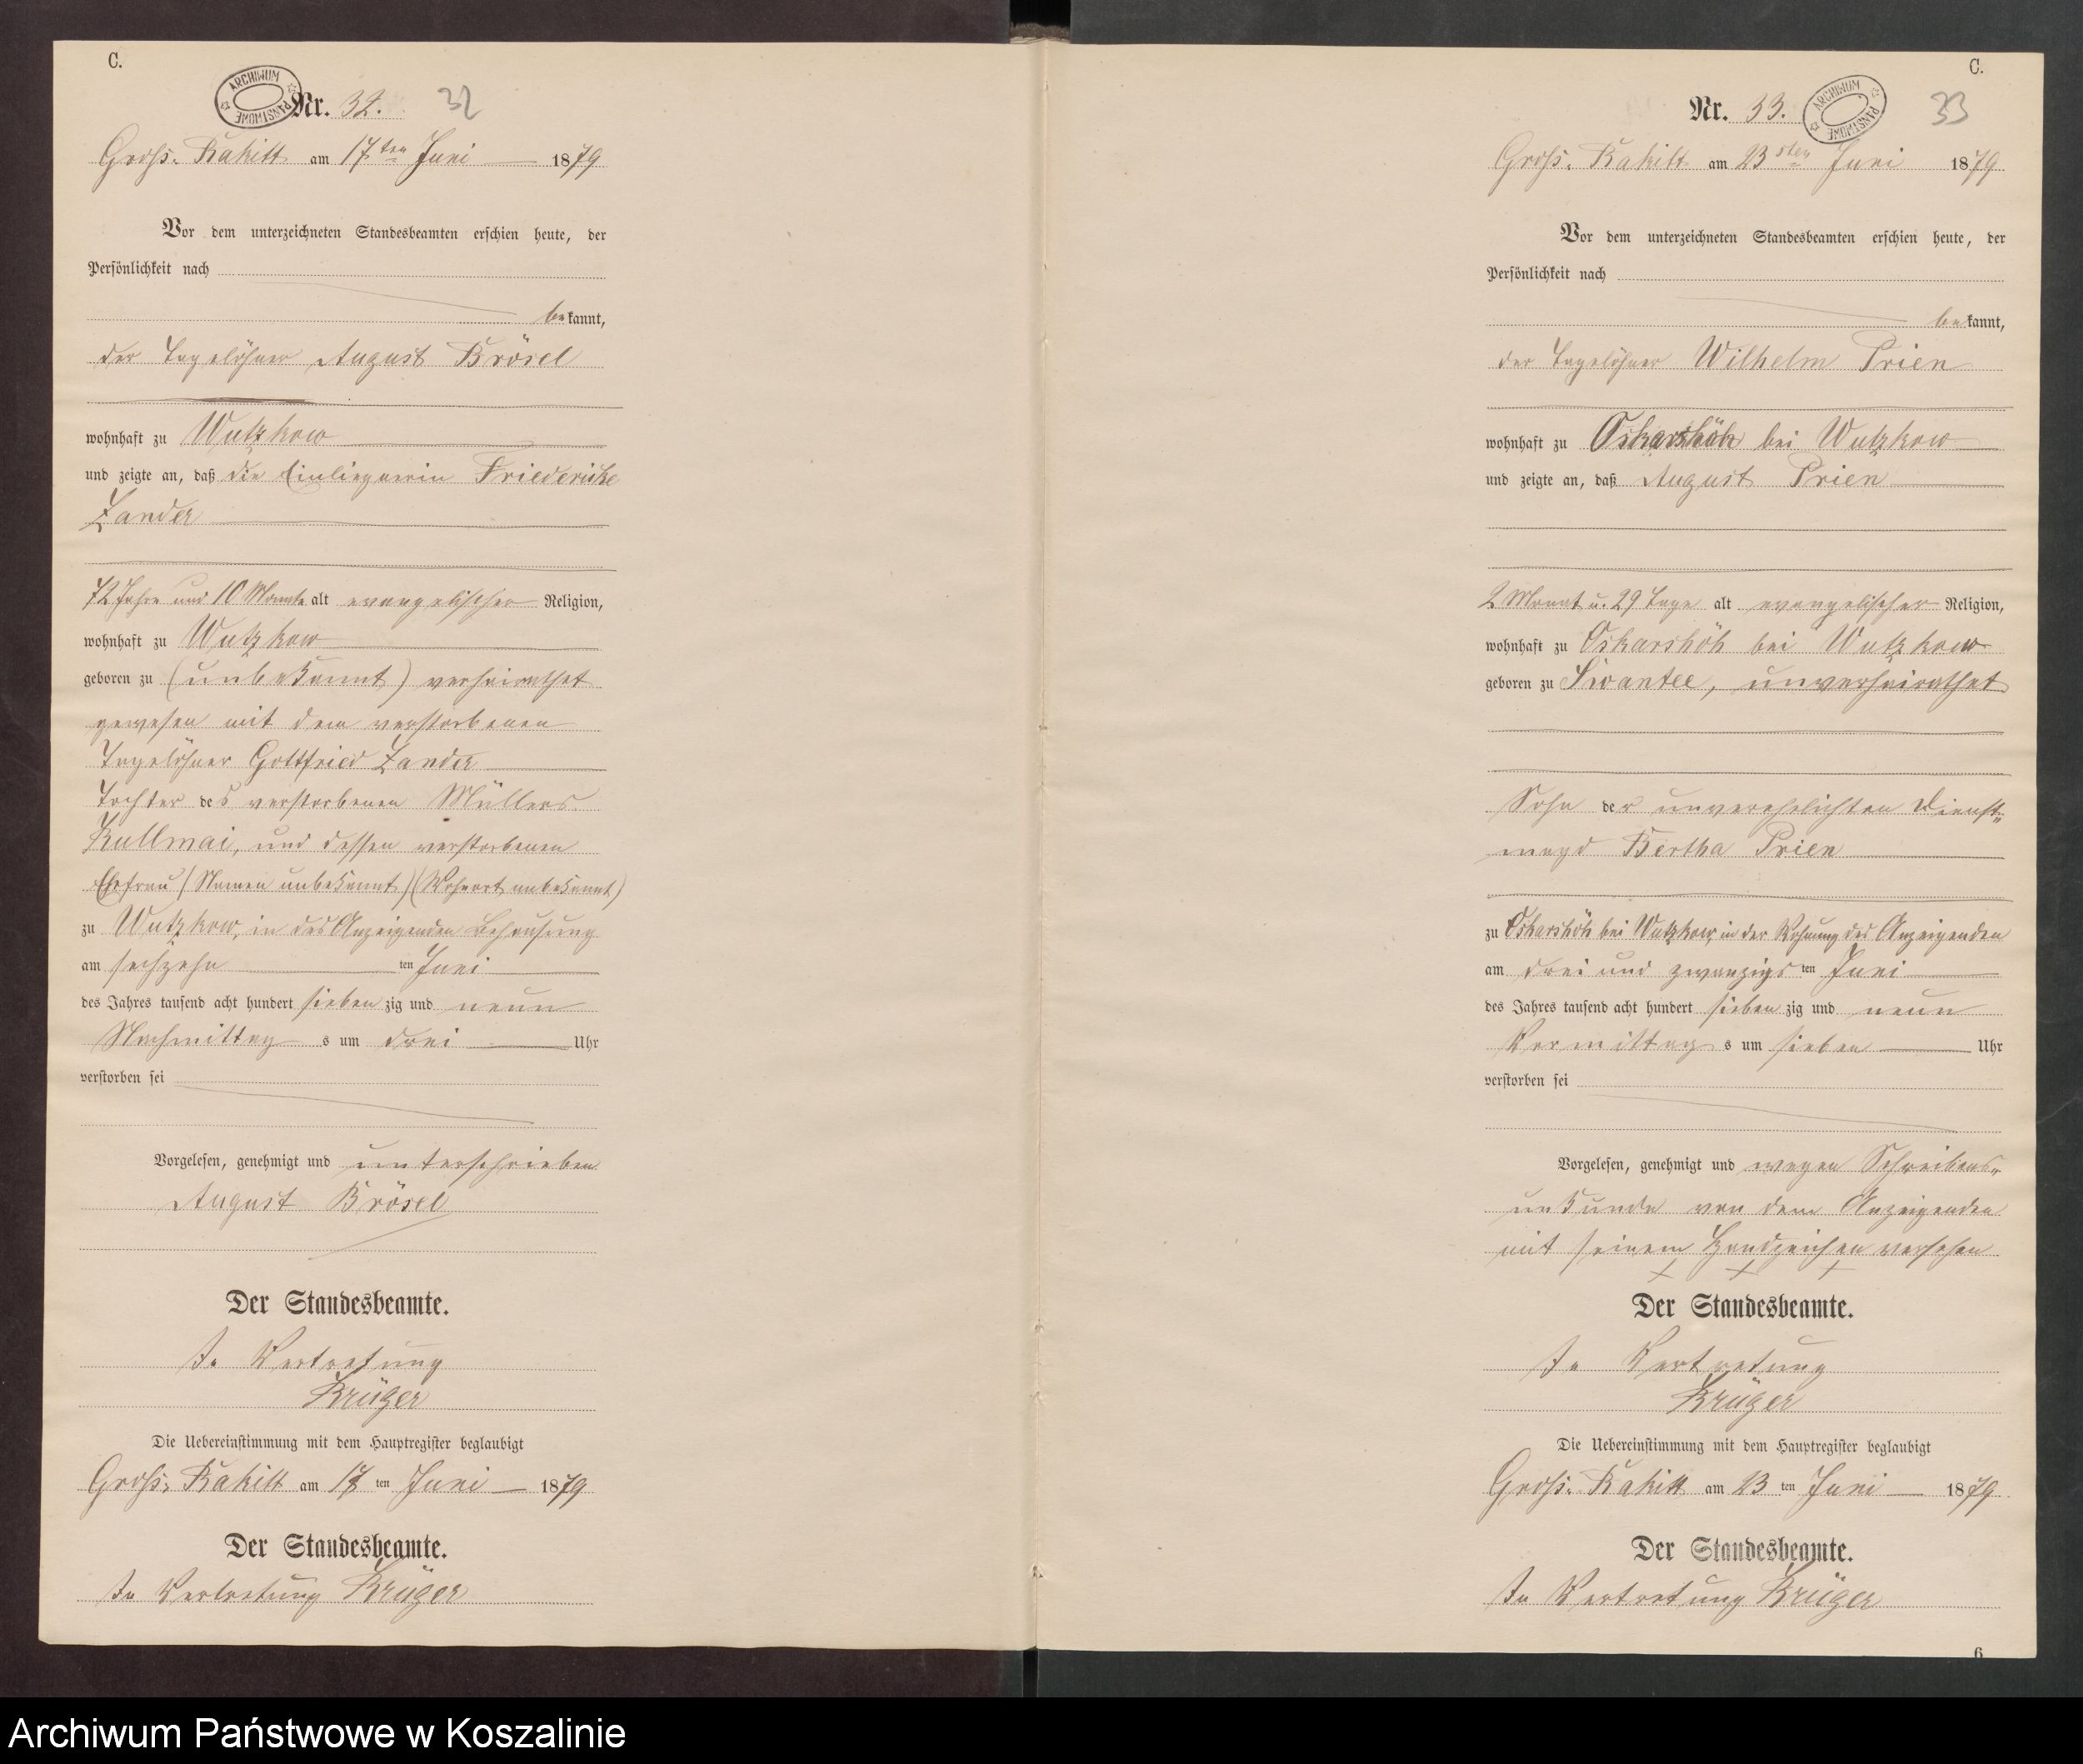 C.
ARCHIWUM PAŃSTWOWE
Nr. 32. 32
Groß-Rakitt am 17ten Juni 1879
Vor dem unterzeichneten Standesbeamten erschien heute, der
Persönlichkeit nach
bekannt,
der Tagelöhner August Brösel
wohnhaft zu Wutzkow
und zeigte an, daß die Einliegerin Friedericke
Zander
72 Jahre und 10 Monate alt evangelischer Religion,
wohnhaft zu Wutzkow
geboren zu (unbekannt) verheirathet
gewesen mit dem verstorbenen
Tagelöhner Gottfried Zander
Tochter des verstorbenen Müllers
Kullmai, und dessen verstorbenen
Ehefrau (Namen unbekannt) (Wohnort unbekannt)
zu Wutzkow, in des Anzeigenden Behausung
am sechzehnten Juni
des Jahres tausend acht hundert siebenzig und neun
Nachmittags um drei Uhr
verstorben sei
Vorgelesen, genehmigt und unterschrieben
August Brösel
Der Standesbeamte.
In Vertretung
Krüger
Die Uebereinstimmung mit dem Hauptregister beglaubigt
Groß-Rakitt am 17ten Juni 1879
Der Standesbeamte.
In Vertretung Krüger
C.
Nr. 33. 33
ARCHIWUM PAŃSTWOWE
Groß-Rakitt am 23sten Juni 1879
Vor dem unterzeichneten Standesbeamten erschien heute, der
Persönlichkeit nach
bekannt,
der Tagelöhner Wilhelm Prien
wohnhaft zu Oskarshöh bei Wutzkow
und zeigte an, daß August Prien
2 Monat u. 29 Tage alt evangelischer Religion,
wohnhaft zu Oskarshöh bei Wutzkow
geboren zu Swantee, unverheirathet
Sohn der unverehelichten Dienst-
magd Bertha Prien
zu Oskarshöh bei Wutzkow, in der Wohnung des Anzeigenden
am drei und zwanzigsten Juni
des Jahres tausend acht hundert siebenzig und neun
Vormittags um sieben Uhr
verstorben sei
Vorgelesen, genehmigt und wegen Schreibens-
unkunde von dem Anzeigenden
mit seinem Handzeichen versehen
x x x
Der Standesbeamte.
In Vertretung
Krüger
Die Uebereinstimmung mit dem Hauptregister beglaubigt
Groß-Rakitt am 23ten Juni 1879
Der Standesbeamte.
In Vertretung Krüger
6
Archiwum Państwowe w Koszalinie